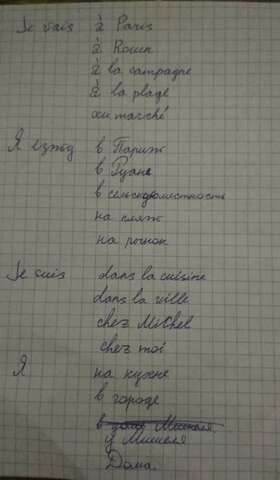 Je vais à Paris
à Rouen
à la campagne
à la plage
au marché
Я в Париж
в Руан
в сельскую местность
на пляж
на рынок
Je suis dans la cuisine
dans la ville
chez Michel
chez moi
Я на кухне
в городе
в доме Мишеля
У Мишеля
Дома